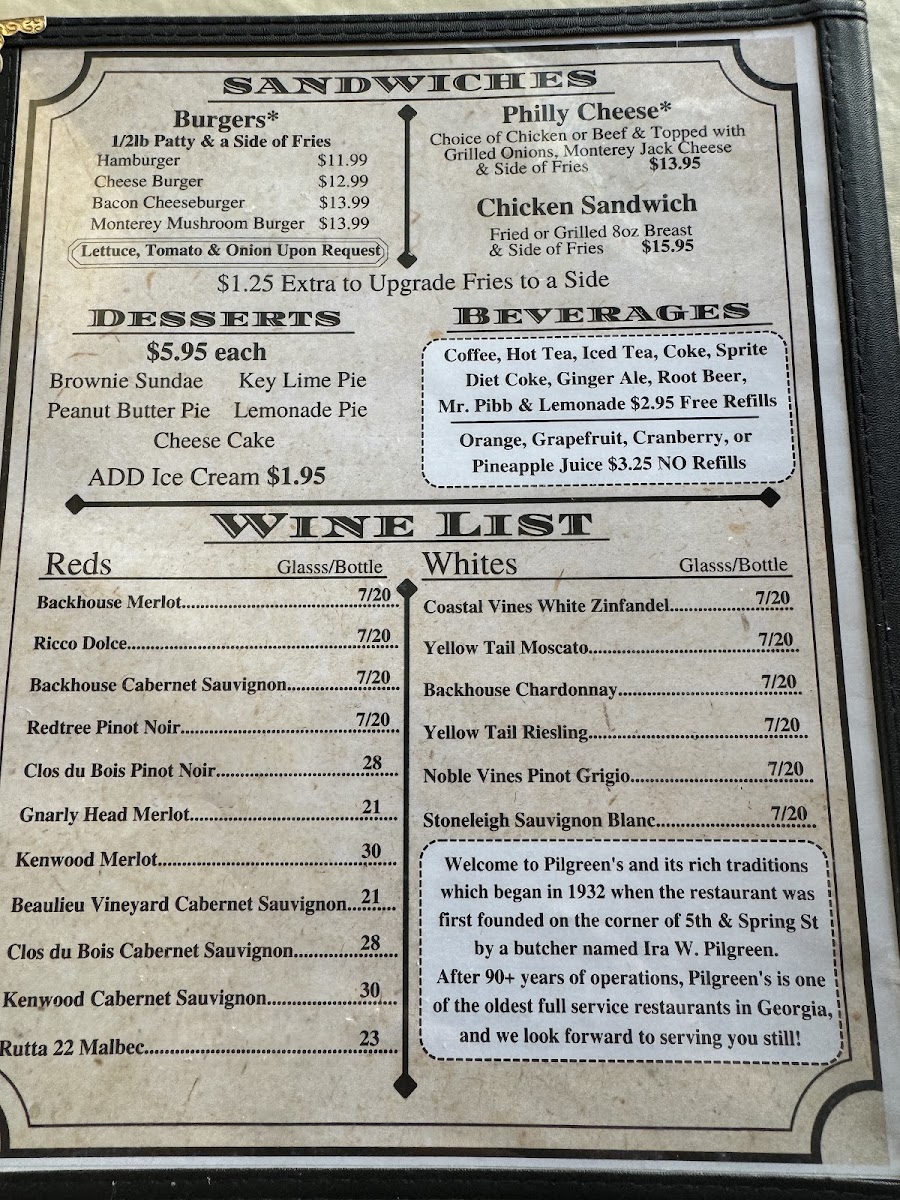 SANDWICHES
Burgers*
1/2lb Patty & a Side of Fries
Hamburger $11.99
Cheese Burger $12.99
Bacon Cheeseburger $13.99
Monterey Mushroom Burger $13.99
Lettuce, Tomato & Onion Upon Request
Philly Cheese*
Choice of Chicken or Beef & Topped with
Grilled Onions, Monterey Jack Cheese
& Side of Fries $13.95
Chicken Sandwich
Fried or Grilled 8oz Breast
& Side of Fries $15.95
$1.25 Extra to Upgrade Fries to a Side
DESSERTS
$5.95 each
Brownie Sundae Key Lime Pie
Peanut Butter Pie Lemonade Pie
Cheese Cake
ADD Ice Cream $1.95
BEVERAGES
Coffee, Hot Tea, Iced Tea, Coke, Sprite
Diet Coke, Ginger Ale, Root Beer,
Mr. Pibb & Lemonade $2.95 Free Refills
Orange, Grapefruit, Cranberry, or
Pineapple Juice $3.25 NO Refills
WINE LIST
Reds Glasss/Bottle
Backhouse Merlot 7/20
Ricco Dolce 7/20
Backhouse Cabernet Sauvignon 7/20
Redtree Pinot Noir 7/20
Clos du Bois Pinot Noir 28
Gnarly Head Merlot 21
Kenwood Merlot 30
Beaulieu Vineyard Cabernet Sauvignon 21
Clos du Bois Cabernet Sauvignon 28
Kenwood Cabernet Sauvignon 30
Rutta 22 Malbec 23
Whites Glasss/Bottle
Coastal Vines White Zinfandel 7/20
Yellow Tail Moscato 7/20
Backhouse Chardonnay 7/20
Yellow Tail Riesling 7/20
Noble Vines Pinot Grigio 7/20
Stoneleigh Sauvignon Blanc 7/20
Welcome to Pilgreen's and its rich traditions
which began in 1932 when the restaurant was
first founded on the corner of 5th & Spring St
by a butcher named Ira W. Pilgreen.
After 90+ years of operations, Pilgreen's is one
of the oldest full service restaurants in Georgia,
and we look forward to serving you still!